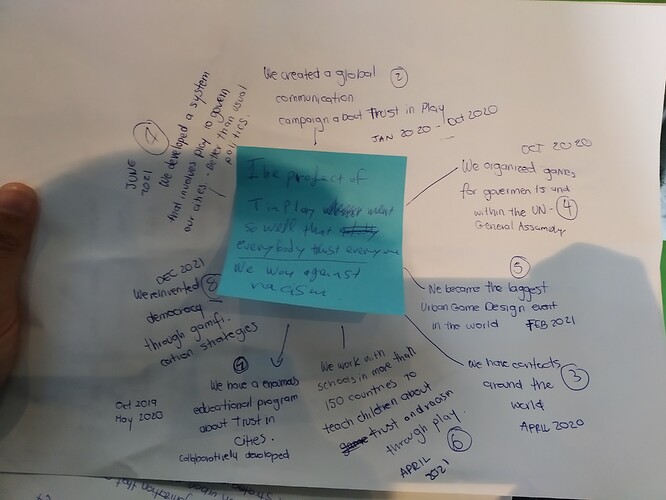 We created a global
2
communication
campaign about Trust in Play
JAN 2020 - Oct 2020
7
JUNE
2021
We developed a system
that involves play to govern
our cities - better than usual
politics.
The project of
TinPlay went
so well that
everybody trust everyone
We won against
racism.
OCT 2020
We organized games
for goverments and
within the UN - 4
General Assembly
5
We became the biggest
Urban Game Design event
in the world FEB 2021
We have contacts
around the 3
world
APRIL 2020
DEC 2021
We reinvented 8
democracy
through gamifi-
cation strategies
1
Oct 2019
May 2020
We have a enormous
educational program
about Trust in
Cities.
collaboratively developed
We work with
schools in more that
150 countries to
teach children about
trust and
through play.
6
APRIL
2021